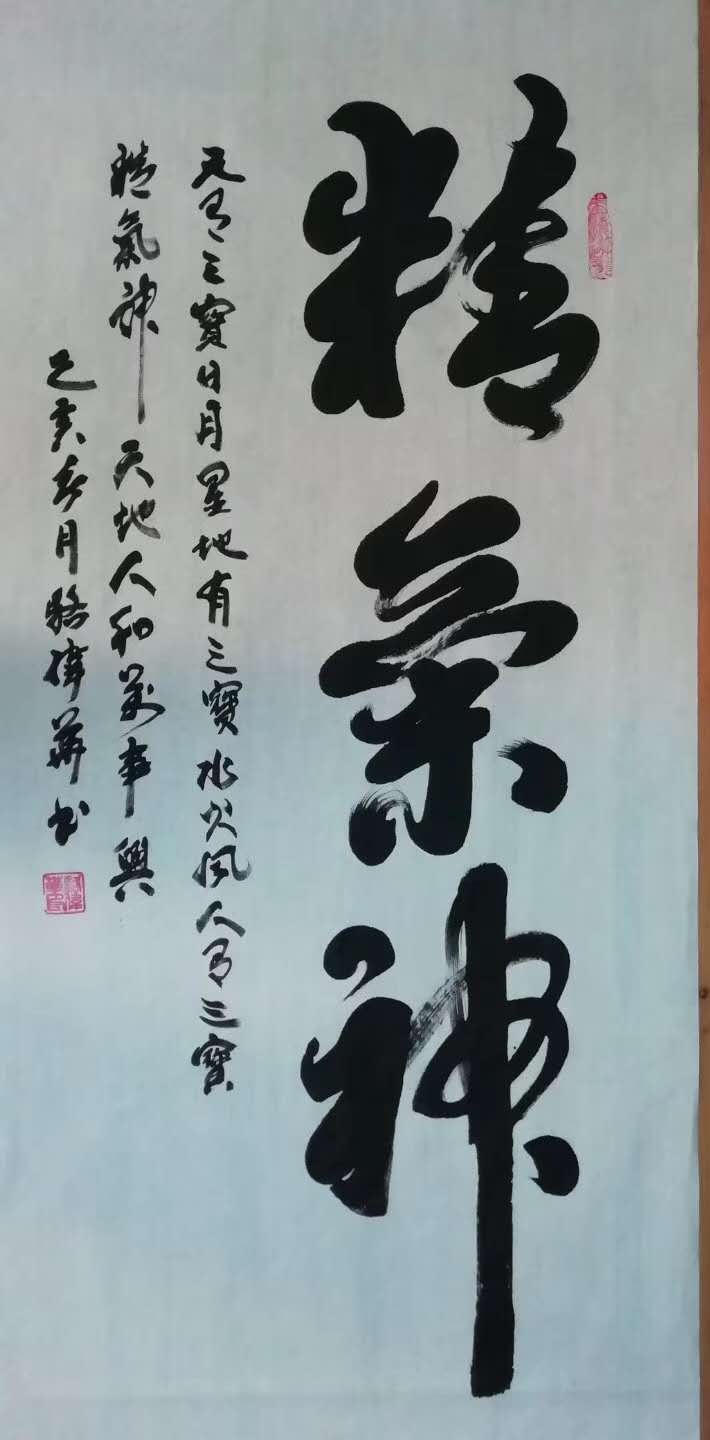 精氣神
天有三寶日月星地有三寶水火風人有三寶
精氣神 天地人和萬事興
己亥春月駱偉華书